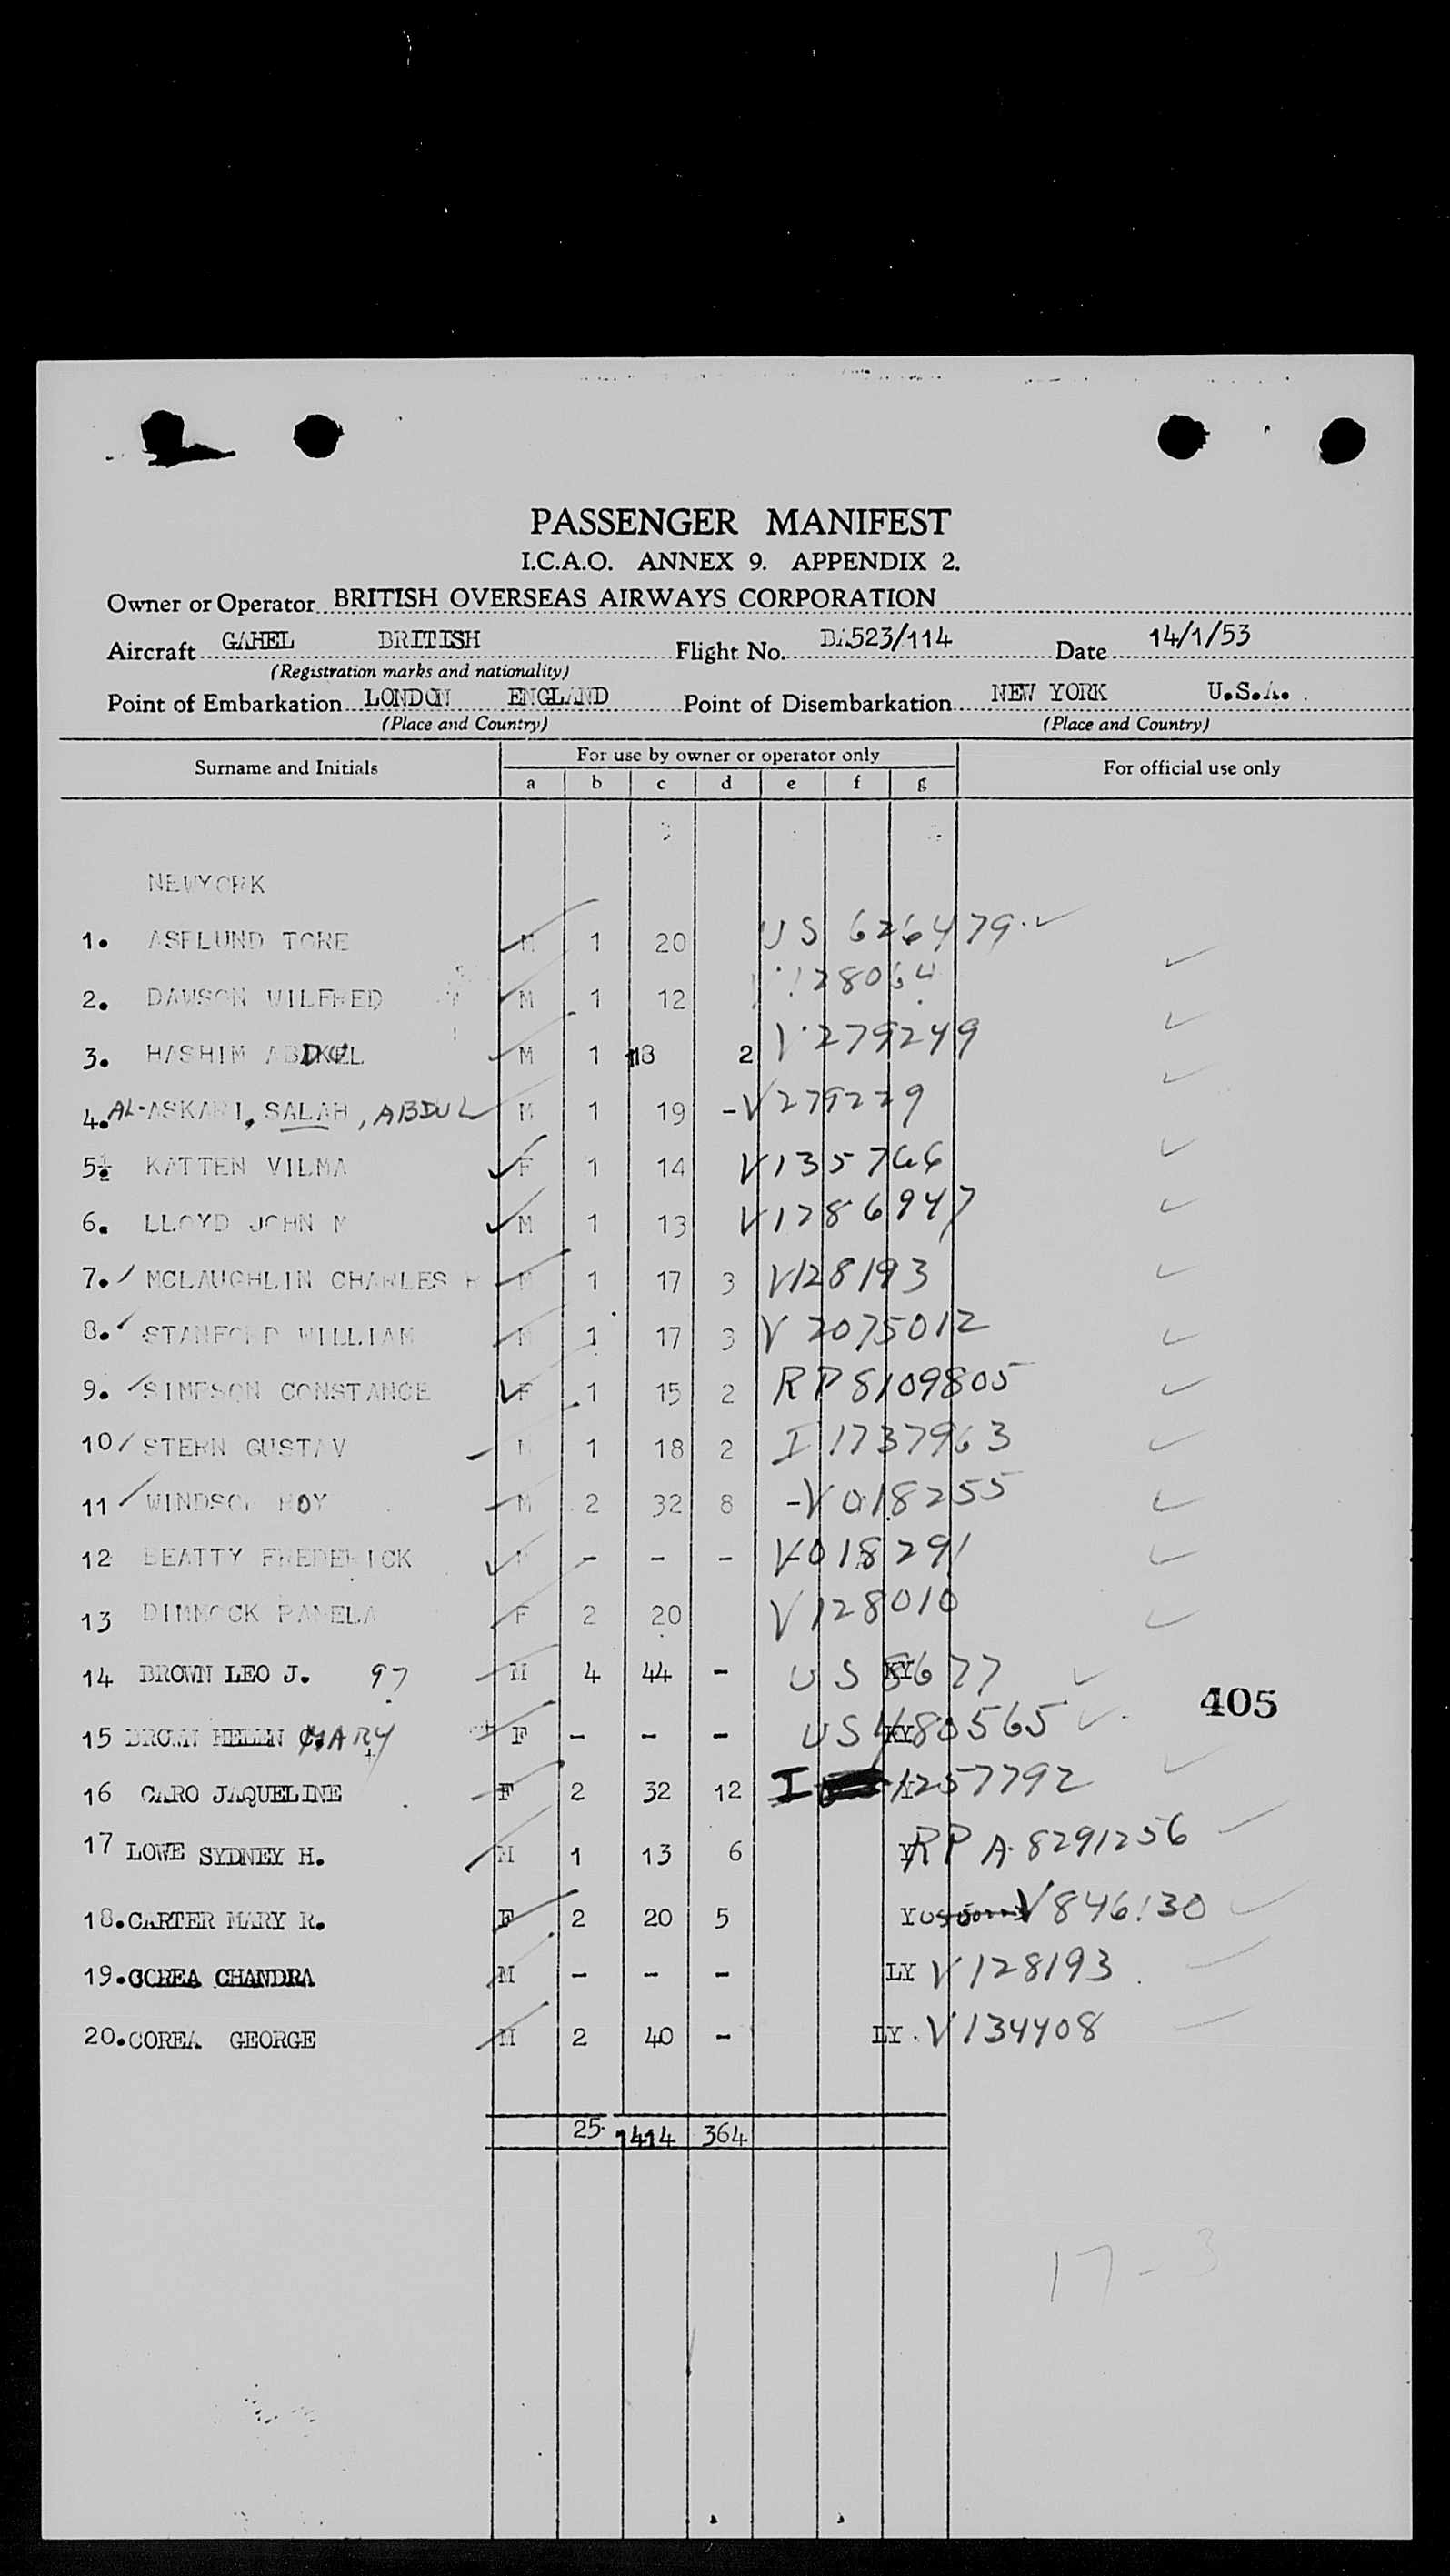 PASSENGER MANIFEST
I.C.A.O. ANNEX 9. APPENDIX 2.
Owner or Operator BRITISH OVERSEAS AIRWAYS CORPORATION
Aircraft GAHEL BRITISH Flight No. BA523/114 Date 14/1/53
(Registration marks and nationality)
Point of Embarkation LONDON ENGLAND Point of Disembarkation NEW YORK U.S.A.
(Place and Country) (Place and Country)
Surname and Initials For use by owner or operator only For official use only
a b c d e f g
NEWYORK
1. ASPLUND TORE M 1 20 US 626479
2. DAWSON WILFRED M 1 12 V128064
3. HASHIM M 1 2 V279249
4. AL-ASKARI, SALAH, ABDUL M 1 19 - V279229
5 KATTEN VILMA F 1 14 V135766
6. LLOYD JOHN M M 1 13 V1286947
7. MCLAUGHLIN CHARLES M 1 17 3 V128193
8. STANFORD WILLIAM M 1 17 3 V 2075012
9. SIMPSON CONSTANCE F 1 15 2 RP 8109805
10 STERN GUSTAV M 1 18 2 I 1737963
11 WINDSOR ROY M 2 32 8 -V 018255
12 BEATTY FREDERICK M - - - V-018291
13 DIMMOCK PAMELA F 2 20 V128010
14 BROWN LEO J. 97 M 4 44 - US KY 8677
15 BROWN HELEN MARY F - - - US KY 480565
405
16 CARO JAQUELINE F 2 32 12 I Y 1257792
17 LOWE SYDNEY H. M 1 13 6 Y RP A-8291256
18. CARTER MARY R. F 2 20 5 Y V846130
19. COREA CHANDRA M - - - LY V128193
20. COREA GEORGE M 2 40 - LY V134408
25 1414 364
17-3